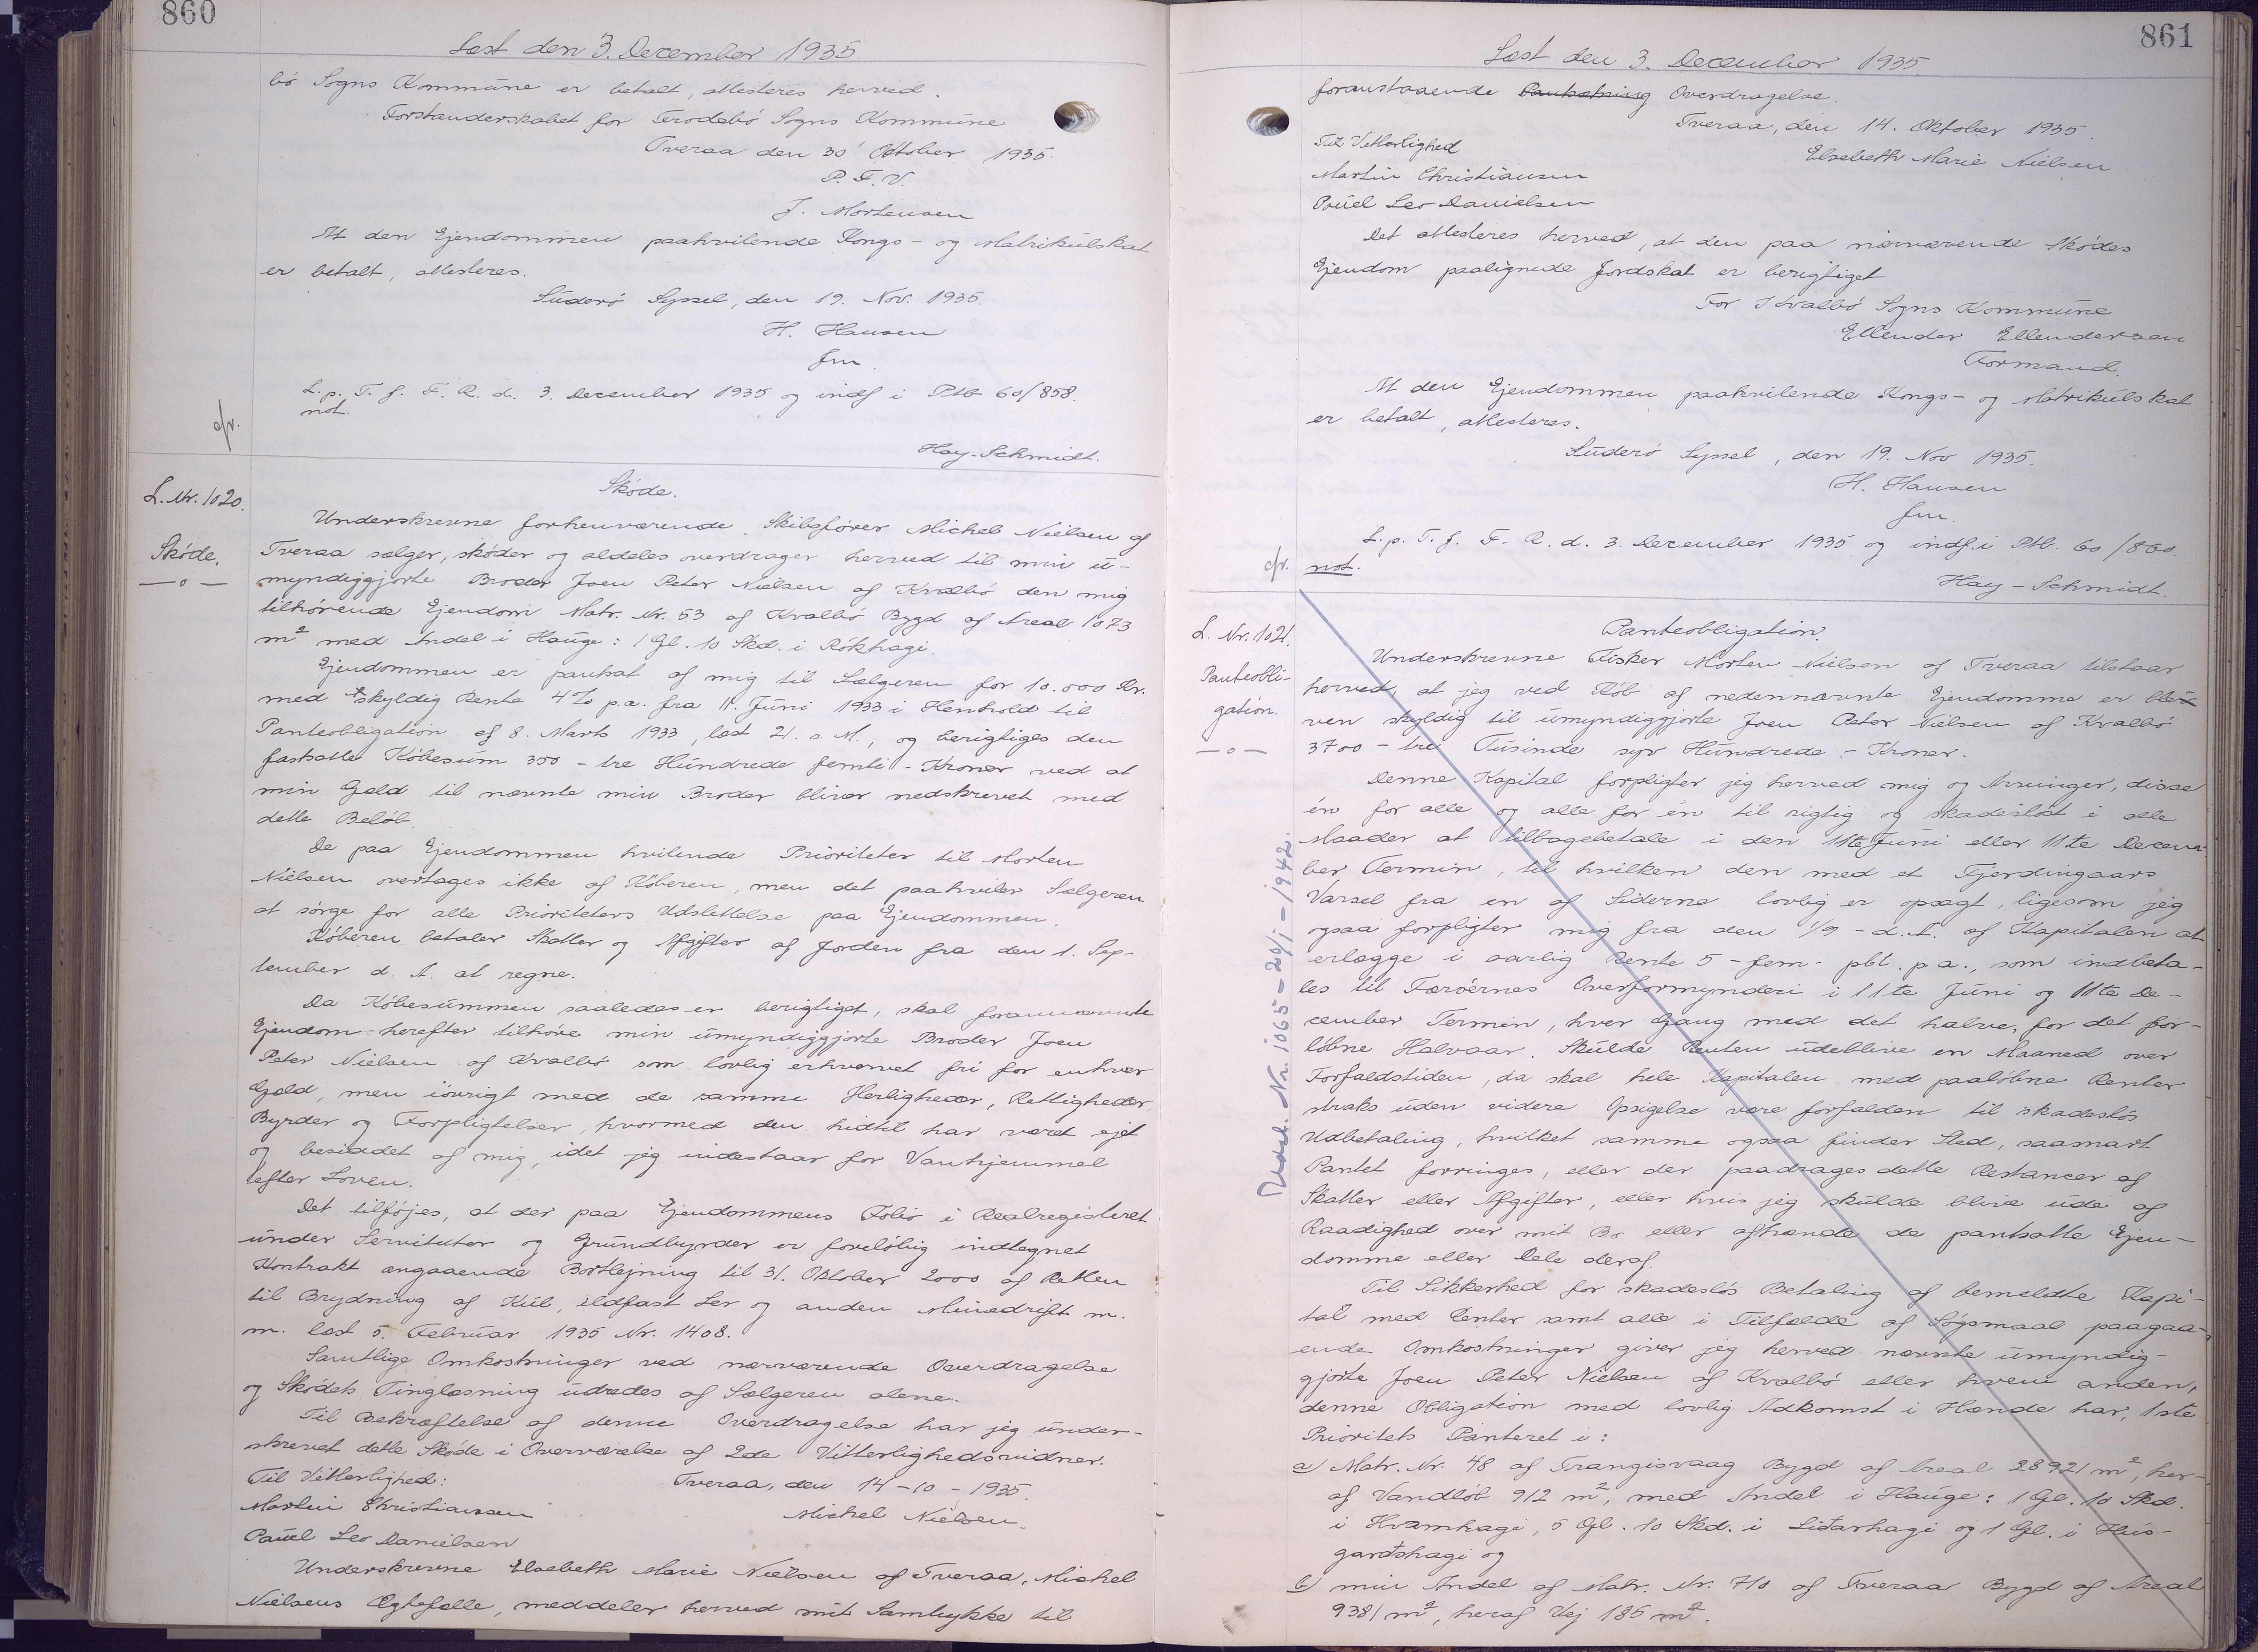 860
Læst den 3. December 1935
bö Sogns Kommune er betalt, attesteres herved.
Forstanderskabet for Frodebö Sogns Kommune
Tveraa den 30' Oktober 1935.
P. F. V.
J. Mortensen
At den Ejendommen paahvilende Kongs- og Matrikulskat
er betalt, attesteres.
Suderö Syssel, den 19. Nov. 1935.
H. Hansen
fm.
L. p. T. f. F. R. d. 3. December 1935 og indf i Ptb 60/858.
not.
cfr.
Hay-Schmidt.
L. Nr. 1020.
Skøde.
— o —
Skøde.
Underskrevne forhenværende Skibsfører Michel Nielsen af
Tveraa sælger, skøder og aldeles overdrager herved til min u-
myndiggjorte Broder Joen Peter Nielsen af Kvalbö den mig
tilhørende Ejendom Matr. Nr. 53 af Kvalbö Bygd af Areal 1073
m² med Andel i Hauge: 1 Gl. 10 Skd. i Rókhagi.
Ejendommen er pantsat af mig til Sælgeren for 10.000 Kr.
med skyldig Rente 4% p.a. fra 11. Juni 1933 i Henhold til
Panteobligation af 8. Marts 1933, læst 21. s. M., og berigtiges den
fastsatte Købesum 350 - tre Hundrede femti - Kroner ved at
min Gæld til nævnte min Broder bliver nedskrevet med
dette Beløb.
De paa Ejendommen hvilende Prioriteter til Morten
Nielsen overtages ikke af Køberen, men det paahviler Sælgeren
at sørge for alle Prioriteters Udslettelse paa Ejendommen.
Køberen betaler Skatter og Afgifter af Jorden fra den 1. Sep-
tember d. A. at regne.
Da Købesummen saaledes er berigtiget, skal forannævnte
Ejendom herefter tilhøre min umyndiggjorte Broder Joen
Peter Nielsen af Kvalbö som lovlig erhvervet fri for enhver
Gæld, men iøvrigt med de samme Herligheder, Rettigheder
Byrder og Forpligtelser, hvormed den hidtil har været ejet
og besiddet af mig, idet jeg indestaar for Vanhjemmel
efter Loven.
Det tilføjes, at der paa Ejendommens Folio i Realregisteret
under Servitutor og Grundbyrder er foreløbig indtegnet
Kontrakt angaaende Bortlejning til 31. Oktober 2000 af Retten
til Brydning af Kul, ildfast Ler og anden Minedrift m.
m. læst 5. Februar 1935 Nr. 1408.
Samtlige Omkostninger ved nærværende Overdragelse
og Skødets Tinglæsning udredes af Sælgeren alene.
Til Bekræftelse af denne Overdragelse har jeg under-
skrevet dette Skøde i Overværelse af 2de Vitterlighedsvidner.
Til Vitterlighed: Tveraa, den 14-10-1935.
Martin Christiansen Michel Nielsen.
Pauel Leo Danielsen
Underskrevne Elsebeth Marie Nielsen af Tveraa, Michel
Nielsens Ægtefælle, meddeler herved mit Samtykke til
861
Læst den 3. December 1935
foranstaaende Pantsætning Overdragelse.
Tveraa, den 14. Oktober 1935.
Til Vitterlighed Elsebeth Marie Nielsen
Martin Christiansen
Pauel Leo Danielsen
Det attesteres herved, at den paa nærværende Skødes
Ejendom paalignede Jordskat er berigtiget
For Kvalbö Sogns Kommune
Ellendor Ellendersen
Formand.
At den Ejendommen paahvilende Kongs- og Matrikulskat
er betalt, attesteres.
Suderö Syssel, den 19. Nov 1935.
H. Hansen
fm.
L. p. T. f. F. R. d. 3. December 1935 og indf. i Ptb. 60/860.
cfr. not.
Hay-Schmidt.
L. Nr. 1021.
Panteobli-
gation.
— o —
Panteobligation.
Underskrevne Fisker Morten Nielsen af Tveraa tilstaar
herved, at jeg ved Køb af nedennævnte Ejendomme er ble-
ven skyldig til umyndiggjorte Joen Peter Nielsen af Kvalbö
3700 - tre Tusinde syv Hundrede - Kroner.
Denne Kapital forpligter jeg herved mig og Arvinger, disse
én for alle og alle for én til rigtig og skadesløst i alle
Maader at tilbagebetale i den 11te Juni eller 11te Decem-
ber Termin, til hvilken den med et Fjerdingaars
Varsel fra en af Siderne lovlig er opsagt, ligesom jeg
ogsaa forpligter mig fra den 1/9 - d. A. af Kapitalen at
erlægge i aarlig Rente 5 - fem - pCt. p a., som indbeta-
les til Færöernes Overformynderi i 11te Juni og 11te De-
cember Termin, hver Gang med det halve, for det for-
løbne Halvaar. Skulde Renten udeblive en Maaned over
Forfaldstiden, da skal hele Kapitalen med paaløbne Renter
straks uden videre Opsigelse være forfalden til skadesløs
Udbetaling, hvilket samme ogsaa finder Sted, saasnart
Pantet forringes, eller der paadrages dette Restancer af
Skatter eller Afgifter, eller hvis jeg skulde blive ude af
Raadighed over mit Bo eller afhænde de pantsatte Ejen-
domme eller Dele deraf.
Til Sikkerhed for skadesløs Betaling af bemeldte Kapi-
tal med Renter samt alle i Tilfælde af Søgsmaal paagaa-
ende Omkostninger giver jeg herved nævnte umyndig-
gjorte Joen Peter Nielsen af Kvalbö eller hvem anden,
denne Obligation med lovlig Adkomst i Hænde har, 1ste
Prioritets Panteret i:
a) Matr. Nr. 48 af Trangisvaag Bygd af Areal 28921 m², her-
af Vandløb 912 m², med Andel i Hauge: 1 Gl. 10 Skd.
i Hvamhagi, 5 Gl. 10 Skd. i Liðarhagi og 1 Gl. i Hús-
garðshagi og
b) min Andel af Matr. Nr. 71o af Tveraa Bygd af Areal
9381 m², heraf Vej 185 m².
Udsl. Nr. 1065 - 29/1 - 1942.